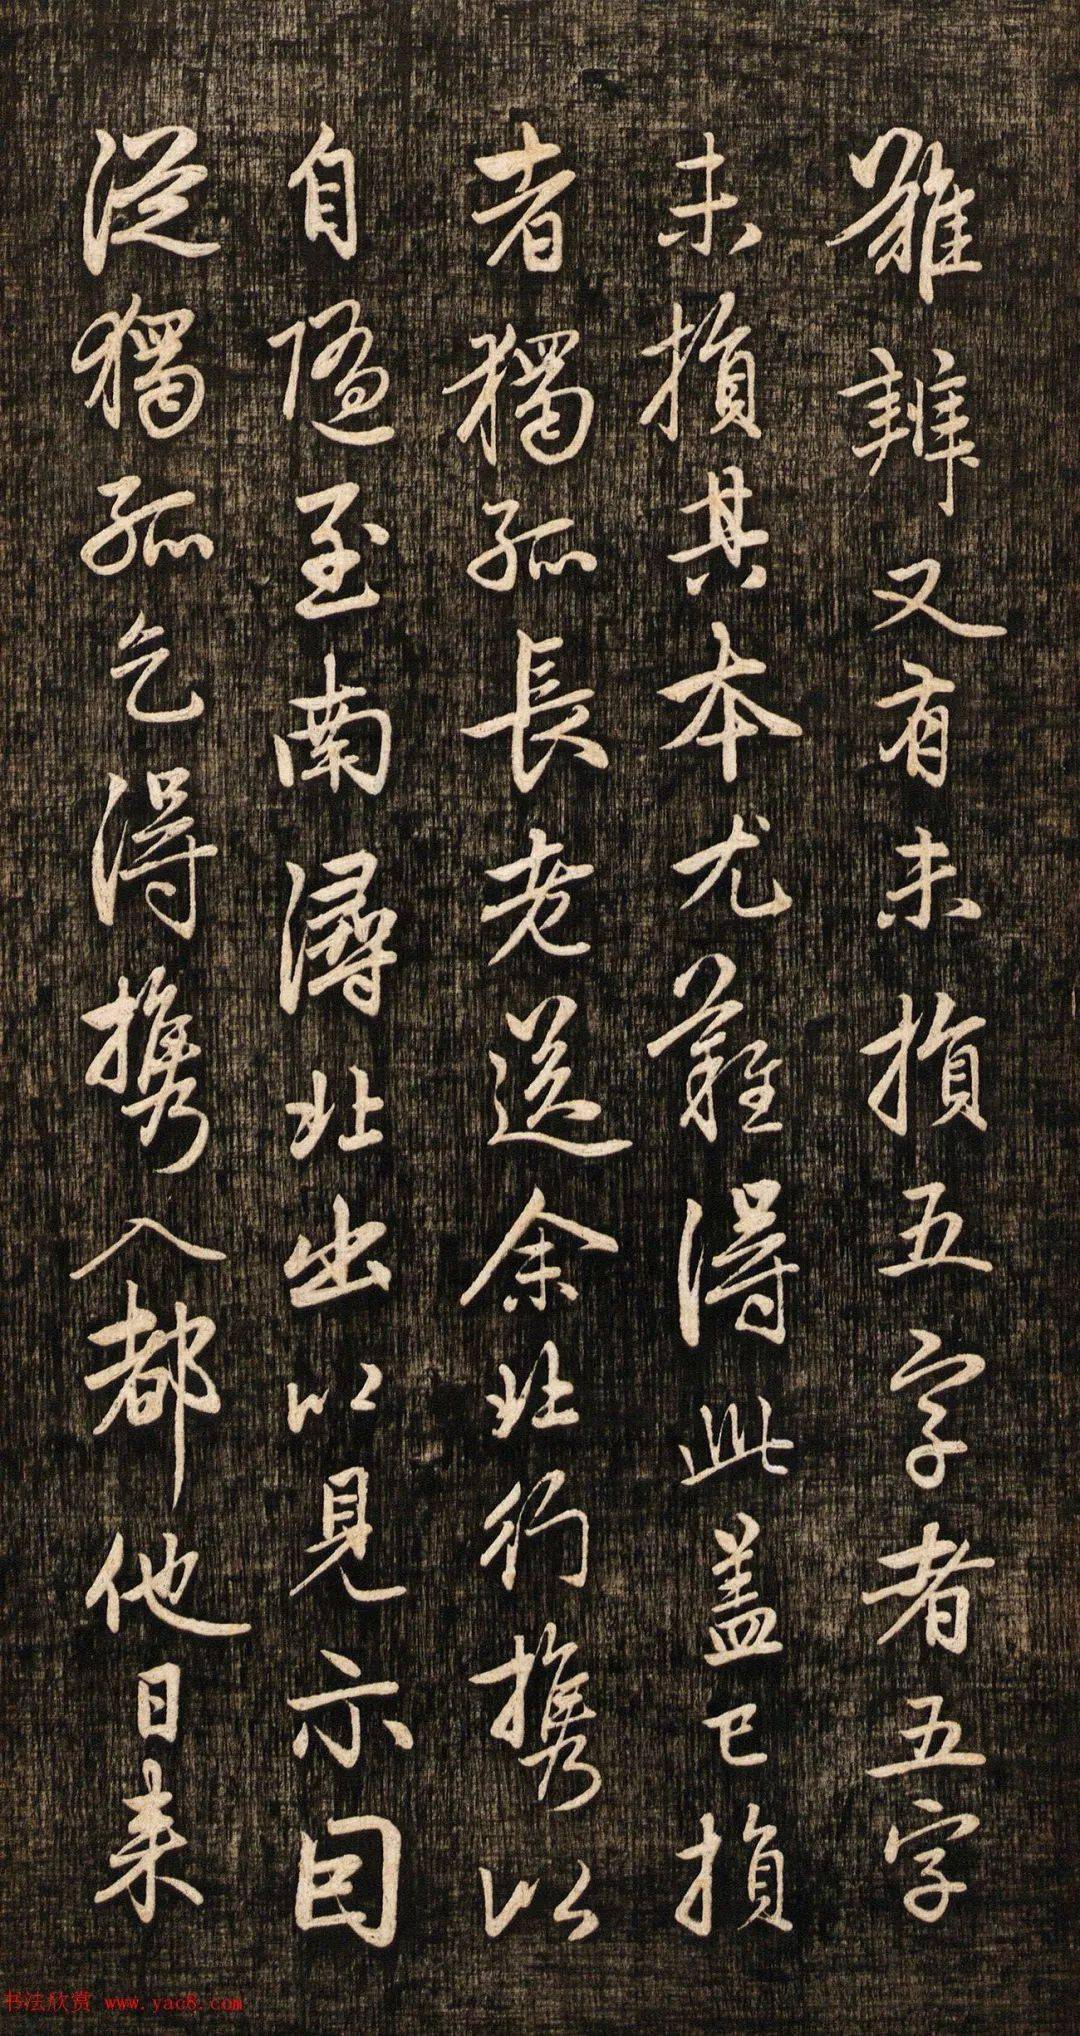 難辨又有未損五字者五字
未損其本尤難得此蓋已損
者獨孤長老送余北行攜以
自隨至南潯北出以見示因
從獨孤乞得攜入都他日来
书法欣赏 www.yac8.com